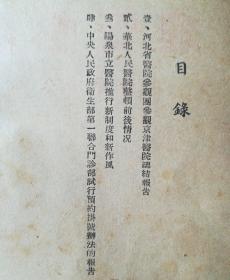 目錄
壹、河北省醫院參觀團參觀京津醫院總結報告
貳、華北人民醫院整頓前後情況
叁、陽泉市立醫院推行新制度和新作風
肆、中央人民政府衛生部第一聯合門診部試行預約掛號辦法的報告